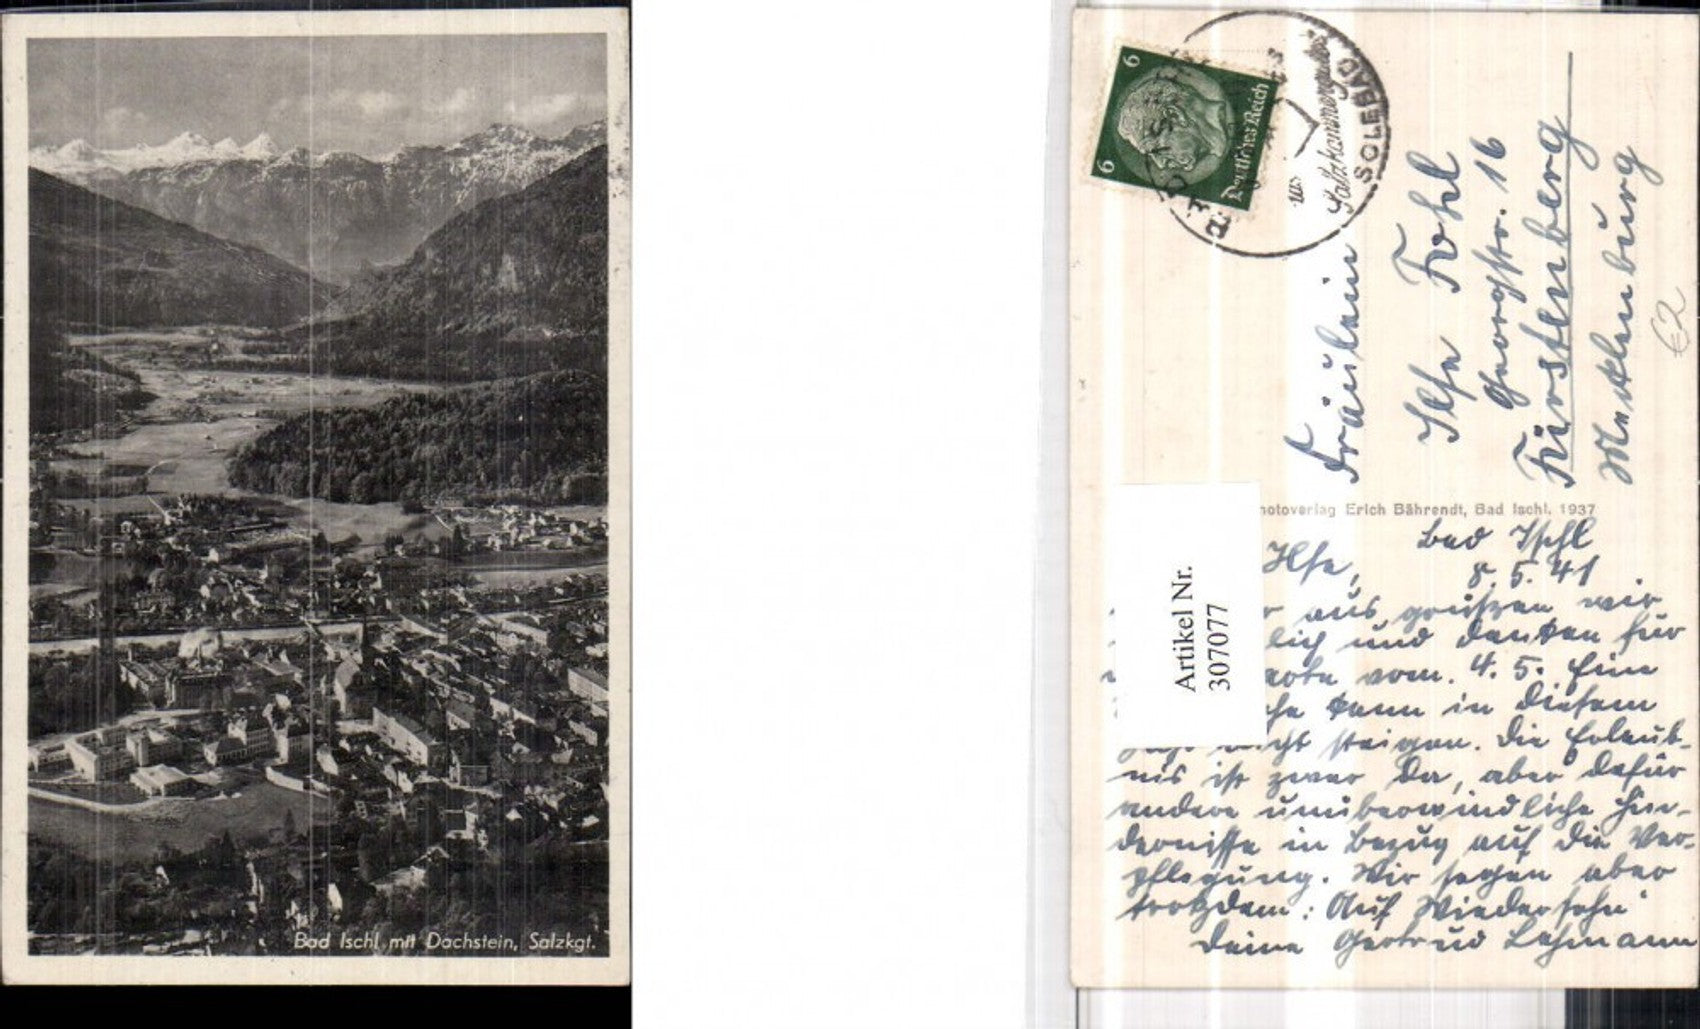 Bad Ischl mit Dachstein, Salzkgt.
6
6
Deutsches Reich
Salzkammergutes
SOLEBAD
Fräulein
Ilse Frohl
Georgstr. 16
Fürstenberg
Mecklenburg
€2
hotoverlag Erich Bährendt, Bad Ischl. 1937
Artikel Nr.
307077
Bad Ischl
8.5.41
Ilse,
aus grüßen wir
lich und danken für
vom. 4.5. Eine
kann in diesem
nicht steigen. Die Erlaub-
nis ist zwar da, aber dafür
andere unüberwindliche Hin-
dernisse in Bezug auf die Ver-
pflegung. Wir sagen aber
trotzdem: Auf Wiedersehn
Deine Gertrud Lehmann